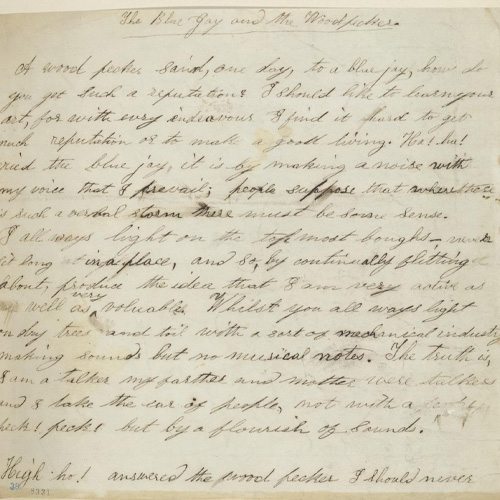 The Blue Jay and the Woodpecker.
A wood pecker said, one day, to a blue jay, how do
you get such a reputation? I should like to learn your
art, for with evry endeavour I find it hard to get
much reputation or to make a good living. Ha! ha!
cried the blue jay, it is by making a noise with
my voice that I prevail; people suppose that where there
is such a verbal storm there must be some sense.
I all ways light on the topmost boughs – never
sit long at in a place, and so, by continually flitting
about, produce the idea that I am very active as
well as very voluable. Whilst you all ways light
on dry trees and toil with a sort of mechanical industry
making sounds but no musical notes. The truth is,
I am a talker my farther and mother were talkers
and I take the ear of people, not with a
peck! peck! but by a flourish of sounds.
High-ho! answered the wood pecker I should never